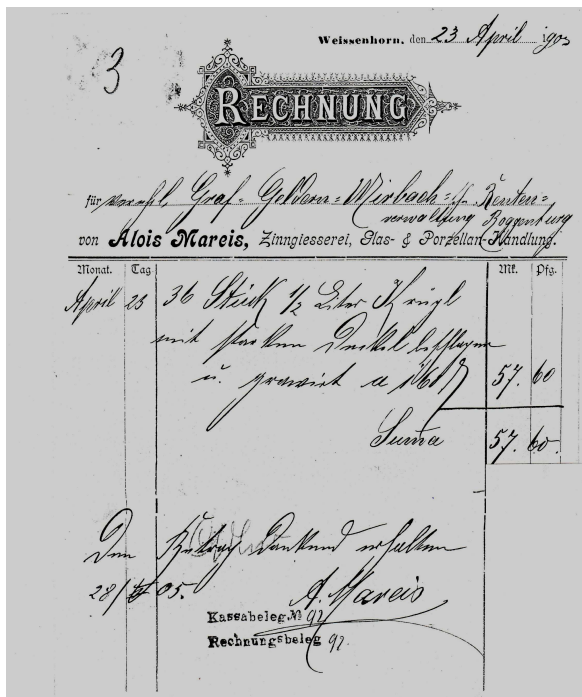 3
Weissenhorn, den 23 April 1905
RECHNUNG
für verehl Graf=Geldern=Mirbach=sche Renten=
verwaltung Roggenburg
von Alois Mareis, Zinngiesserei, Glas- & Porzellan-Handlung.
Monat. Tag Mk. Pfg.
April 23 36 Stück 1/2 Liter Krügl
mit starken Deckel beschlagen
u. gravirt a 1 60 57. 60
Suma 57. 60.
Den Betrag Dankend erhalten
28/ 05. A. Mareis
Kassabeleg № 92
Rechnungsbeleg 92.